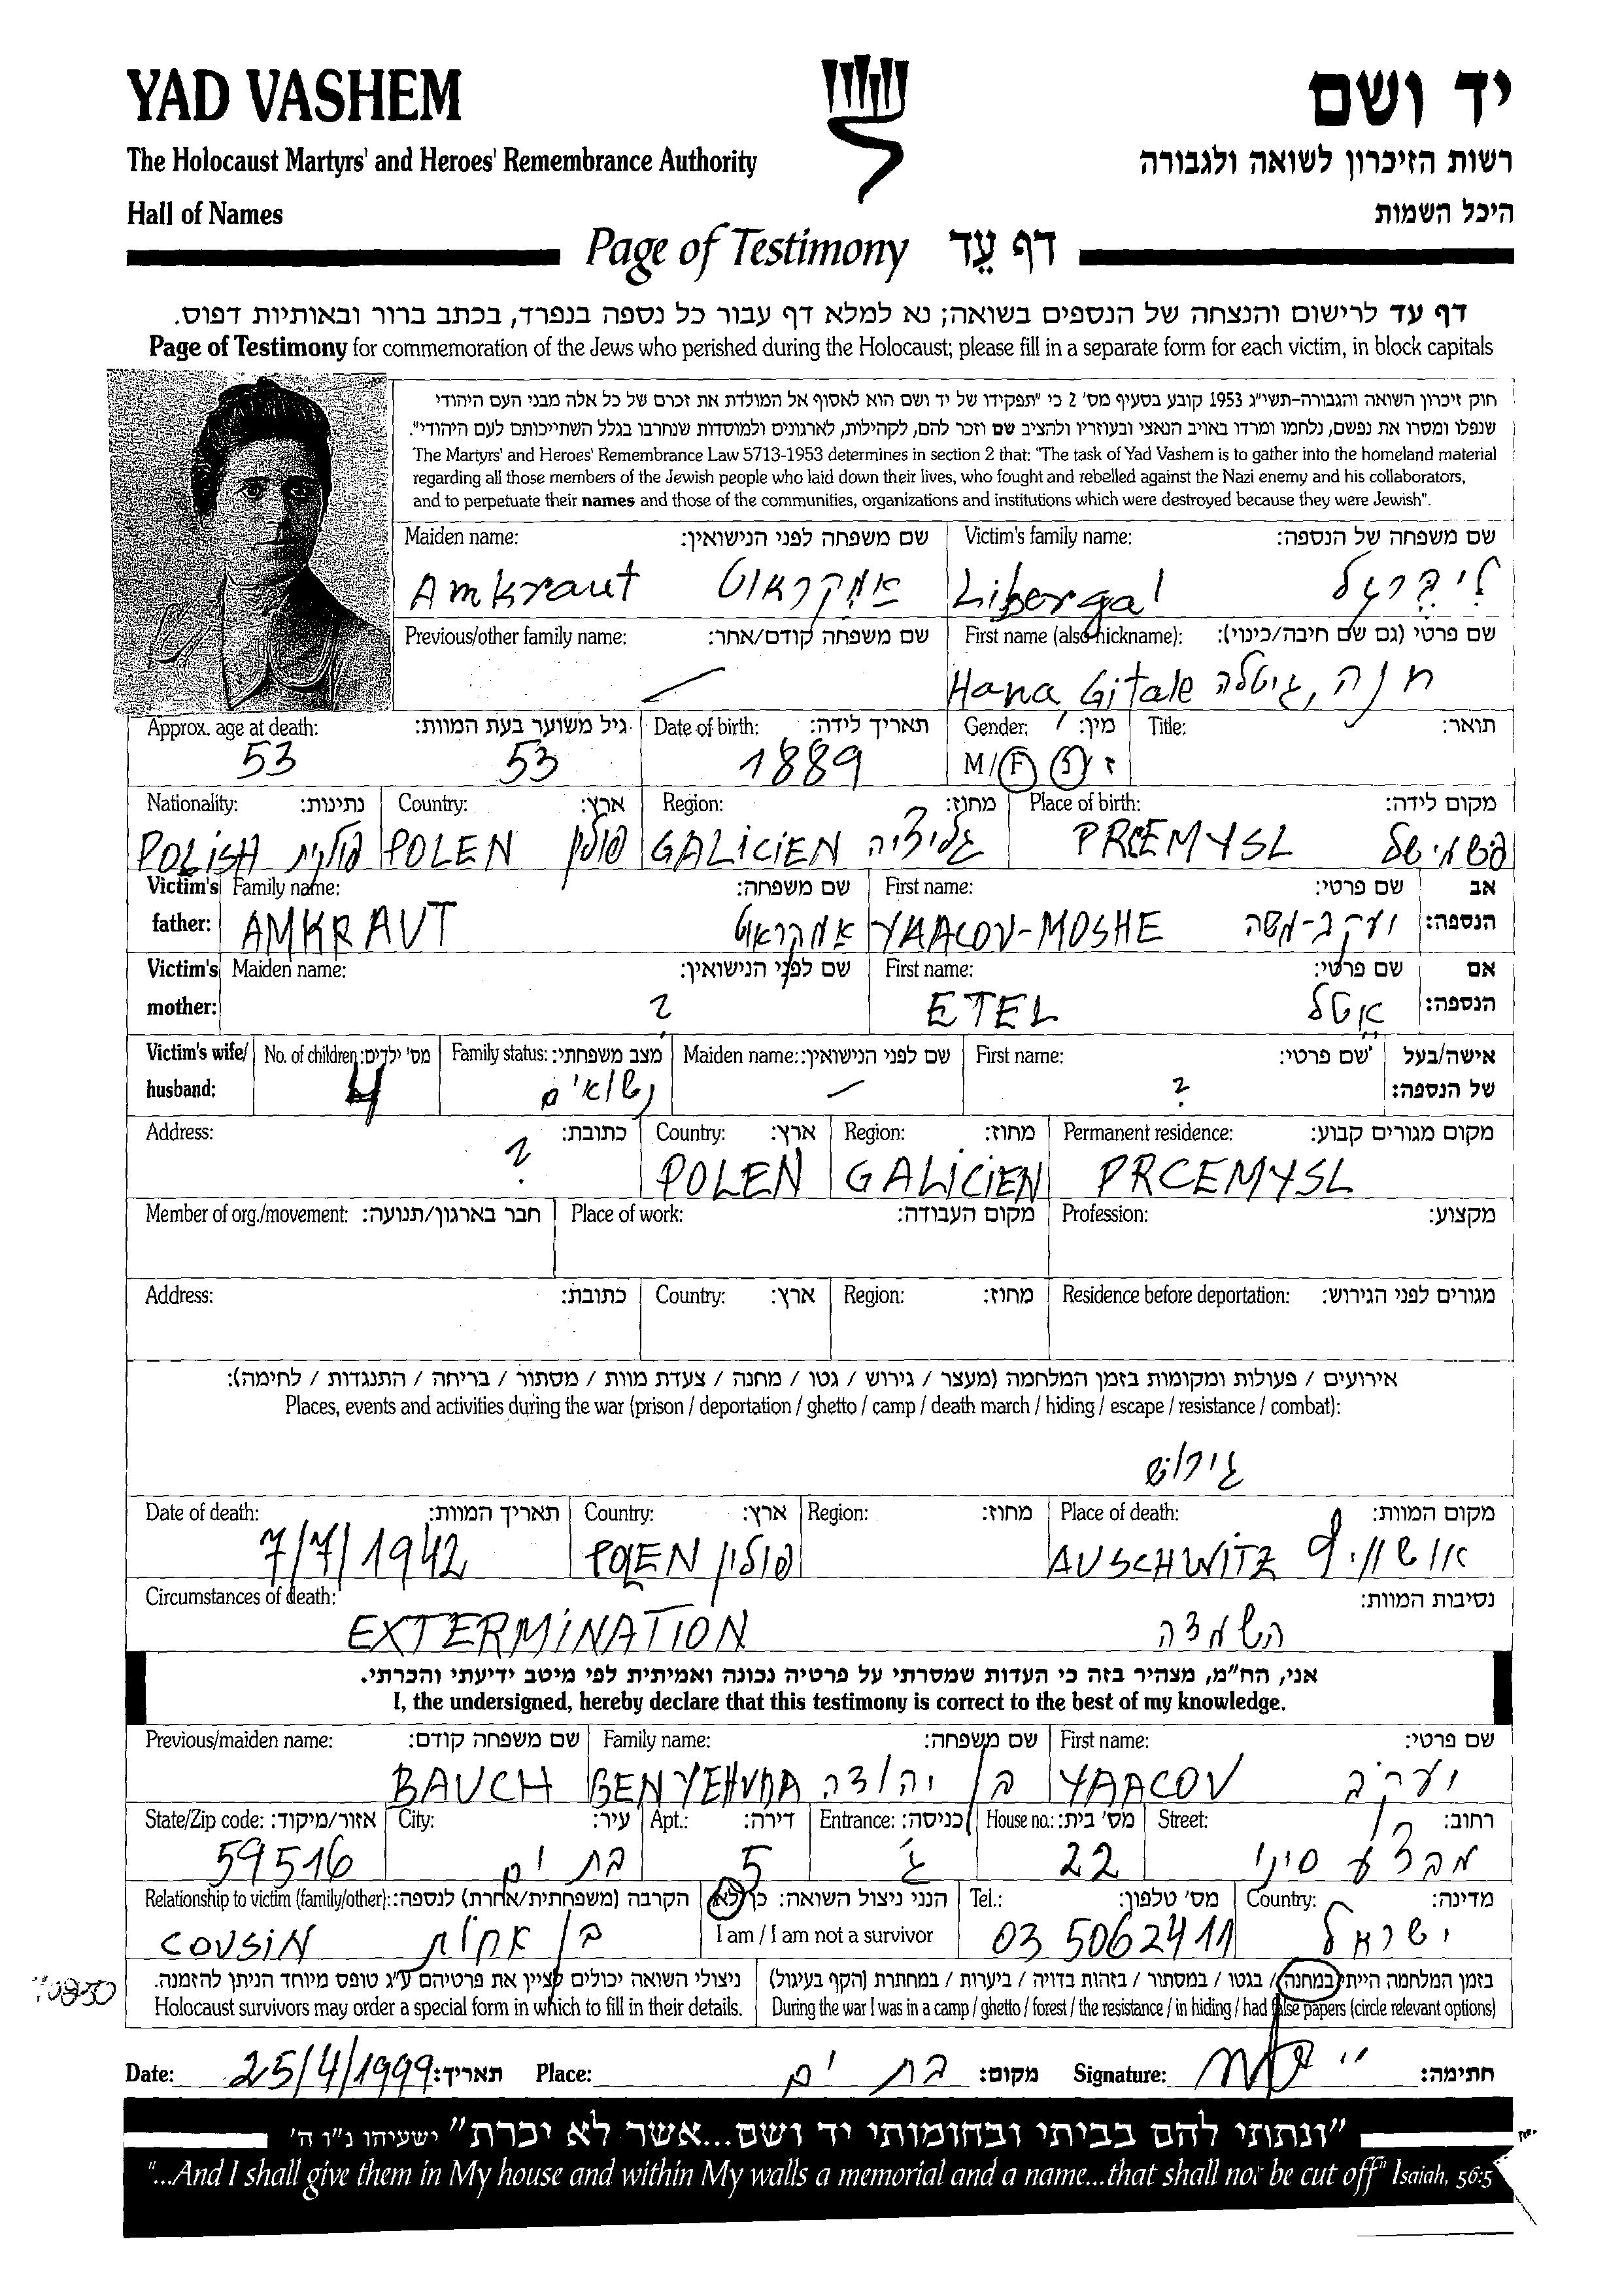 YAD VASHEM יד ושם
The Holocaust Martyrs' and Heroes' Remembrance Authority רשות הזיכרון לשואה ולגבורה
Hall of Names היכל השמות
Page of Testimony דף עֵד
דף עד לרישום והנצחה של הנספים בשואה; נא למלא דף עבור כל נספה בנפרד, בכתב ברור ובאותיות דפוס.
Page of Testimony for commemoration of the Jews who perished during the Holocaust; please fill in a separate form for each victim, in block capitals
חוק זיכרון השואה והגבורה-תשי"ג 1953 קובע בסעיף מס' 2 כי "תפקידו של יד ושם הוא לאסוף אל המולדת את זכרם של כל אלה מבני העם היהודי
שנפלו ומסרו את נפשם, נלחמו ומרדו באויב הנאצי ובעוזריו ולהציב שם וזכר להם, לקהילות, לארגונים ולמוסדות שנחרבו בגלל השתייכותם לעם היהודי".
The Martyrs' and Heroes' Remembrance Law 5713-1953 determines in section 2 that: "The task of Yad Vashem is to gather into the homeland material
regarding all those members of the Jewish people who laid down their lives, who fought and rebelled against the Nazi enemy and his collaborators,
and to perpetuate their names and those of the communities, organizations and institutions which were destroyed because they were Jewish".
Maiden name: שם משפחה לפני הנישואין: Victim's family name: שם משפחה של הנספה:
Amkraut אמקראוט Libergal ליברגל
Previous/other family name: שם משפחה קודם/אחר: First name (also nickname): שם פרטי (גם שם חיבה/כינוי):
Hana, Gitale חנה, גיטלה
Approx. age at death: גיל משוער בעת המוות: Date of birth: תאריך לידה: Gender: מין: Title: תואר:
53 53 1889 M/F ז/נ
Nationality: נתינות: Country: ארץ: Region: מחוז: Place of birth: מקום לידה:
POLISH פולנית POLEN פולין GALICIEN גליציה PRCEMYSL פשמישל
Victim's father: Family name: שם משפחה: First name: שם פרטי: אב הנספה:
AMKRAUT אמקראוט YAACOV-MOSHE יעקב-משה
Victim's mother: Maiden name: שם לפני הנישואין: First name: שם פרטי: אם הנספה:
? ETEL אטל
Victim's wife/ husband: No. of children: מס' ילדים: Family status: מצב משפחתי: Maiden name: שם לפני הנישואין: First name: שם פרטי: אישה/בעל של הנספה:
4 נשואים ?
Address: כתובת: Country: ארץ: Region: מחוז: Permanent residence: מקום מגורים קבוע:
? POLEN GALICIEN PRCEMYSL
Member of org./movement: חבר בארגון/תנועה: Place of work: מקום העבודה: Profession: מקצוע:
Address: כתובת: Country: ארץ: Region: מחוז: Residence before deportation: מגורים לפני הגירוש:
אירועים / פעולות ומקומות בזמן המלחמה (מעצר / גירוש / גטו / מחנה / צעדת מוות / מסתור / בריחה / התנגדות / לחימה):
Places, events and activities during the war (prison / deportation / ghetto / camp / death march / hiding / escape / resistance / combat):
גירוש
Date of death: תאריך המוות: Country: ארץ: Region: מחוז: Place of death: מקום המוות:
7/7/1942 POLEN פולין AUSCHWITZ אושוויץ
Circumstances of death: נסיבות המוות:
EXTERMINATION השמדה
אני, הח"מ, מצהיר בזה כי העדות שמסרתי על פרטיה נכונה ואמיתית לפי מיטב ידיעתי והכרתי.
I, the undersigned, hereby declare that this testimony is correct to the best of my knowledge.
Previous/maiden name: שם משפחה קודם: Family name: שם משפחה: First name: שם פרטי:
BAUCH BENYEHUDA בן יהודה YAACOV יעקב
State/Zip code: אזור/מיקוד: City: עיר: Apt.: דירה: Entrance: כניסה: House no.: מס' בית: Street: רחוב:
59516 בת ים 5 ג 22 מבצע סיני
Relationship to victim (family/other): הקרבה (משפחתית/אחרת) לנספה: הנני ניצול השואה: כן/לא Tel.: מס' טלפון: Country: מדינה:
COUSIN בן אחות I am / I am not a survivor 03 5062411 ישראל
ניצולי השואה יכולים לציין את פרטיהם ע"ג טופס מיוחד הניתן להזמנה. בזמן המלחמה הייתי במחנה / בגטו / במסתור / בזהות בדויה / ביערות / במחתרת (הקף בעיגול)
Holocaust survivors may order a special form in which to fill in their details. During the war I was in a camp / ghetto / forest / the resistance / in hiding / had false papers (circle relevant options)
Date: 25/4/1999 תאריך: Place: בת ים מקום: Signature: חתימה:
"ונתתי להם בביתי ובחומותי יד ושם...אשר לא יכרת" ישעיהו נ"ו ה'
"...And I shall give them in My house and within My walls a memorial and a name...that shall not be cut off" Isaiah, 56:5